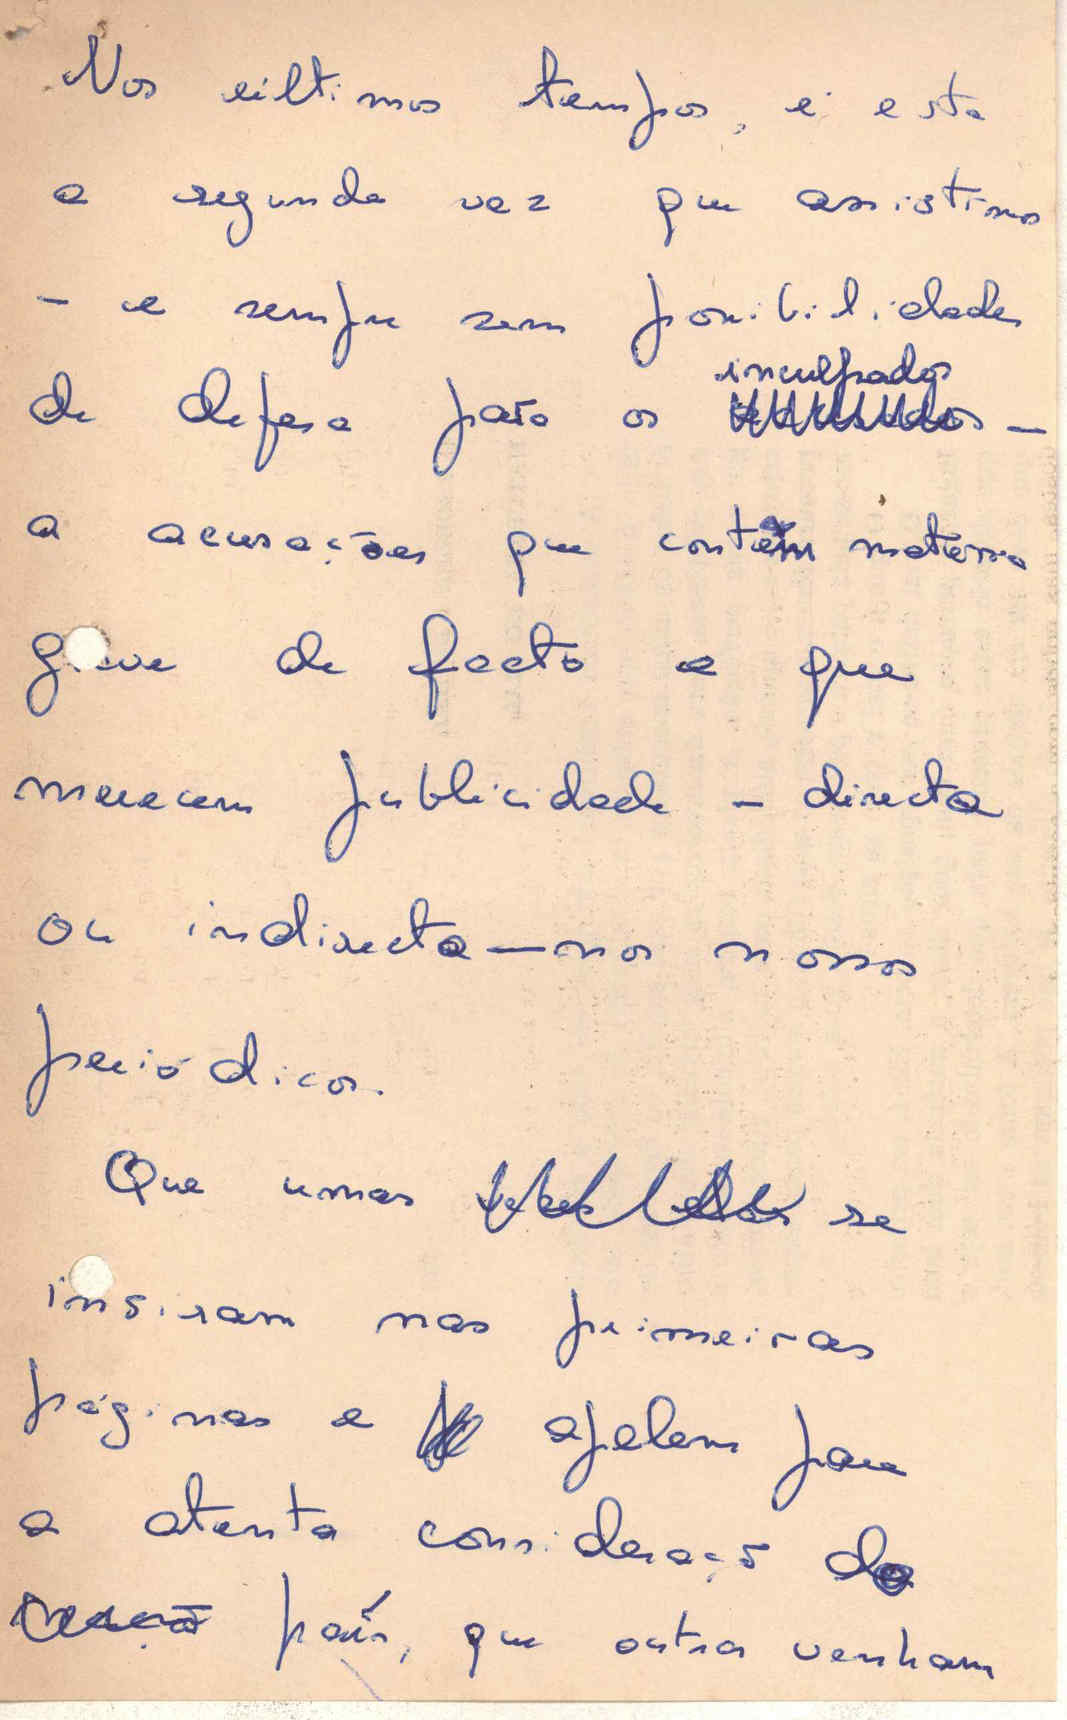 Nos últimos tempos, é esta
a segunda vez que assistimos
- e sempre sem possibilidades
inculpados
de defesa para os -
a acusações que contêm matéria
grave de facto e que
merecem publicidade - directa
ou indirecta - nos nossos
periódicos.
Que umas se
insiram nas primeiras
páginas e apelem para
a atenta consideração do
país, que outras venham